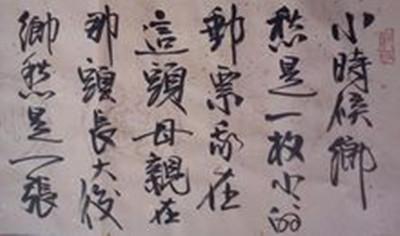 小時候鄉
愁是一枚小小的
郵票我在
這頭母親在
那頭長大後
鄉愁是一張